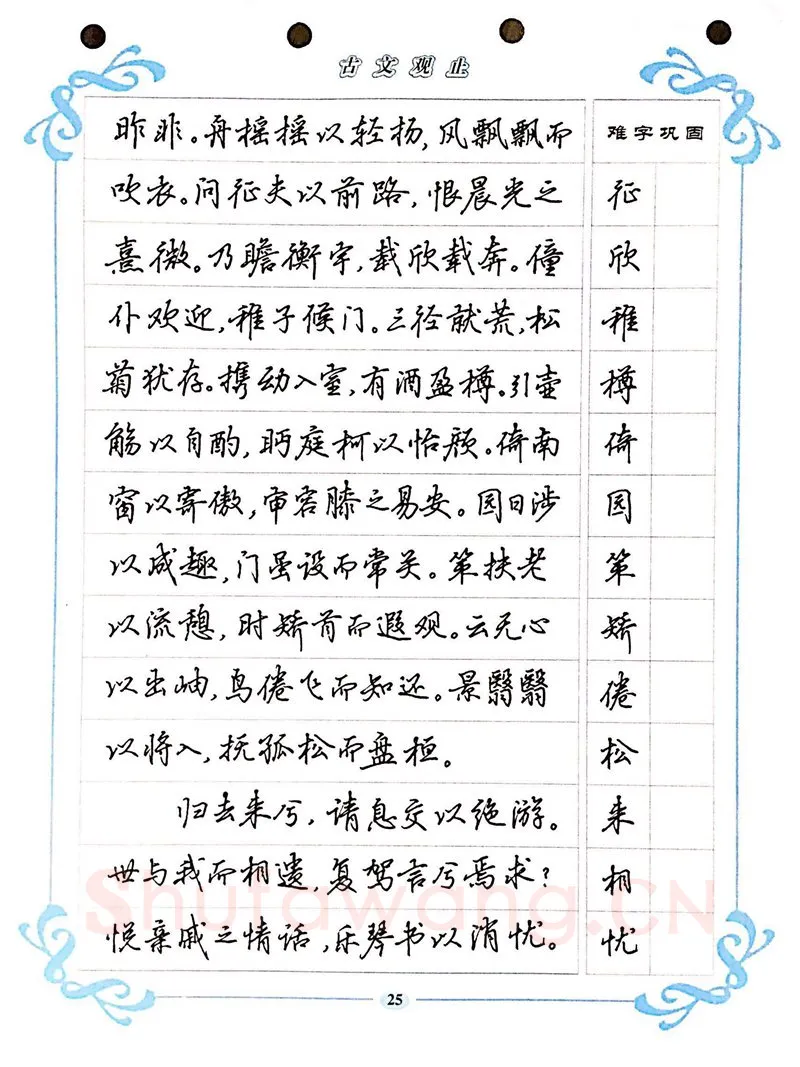 古文观止
昨非。舟摇摇以轻扬,风飘飘而
难字巩固
吹衣。问征夫以前路,恨晨光之
征
熹微。乃瞻衡宇,载欣载奔。僮
欣
仆欢迎,稚子候门。三径就荒,松
稚
菊犹存。携幼入室,有酒盈樽。引壶
樽
觞以自酌,眄庭柯以怡颜。倚南
倚
窗以寄傲,审容膝之易安。园日涉
园
以成趣,门虽设而常关。策扶老
策
以流憩,时矫首而遐观。云无心
矫
以出岫,鸟倦飞而知还。景翳翳
倦
以将入,抚孤松而盘桓。
松
归去来兮,请息交以绝游。
来
世与我而相遗,复驾言兮焉求?
相
悦亲戚之情话,乐琴书以消忧。
忧
Shufawang.CN
25